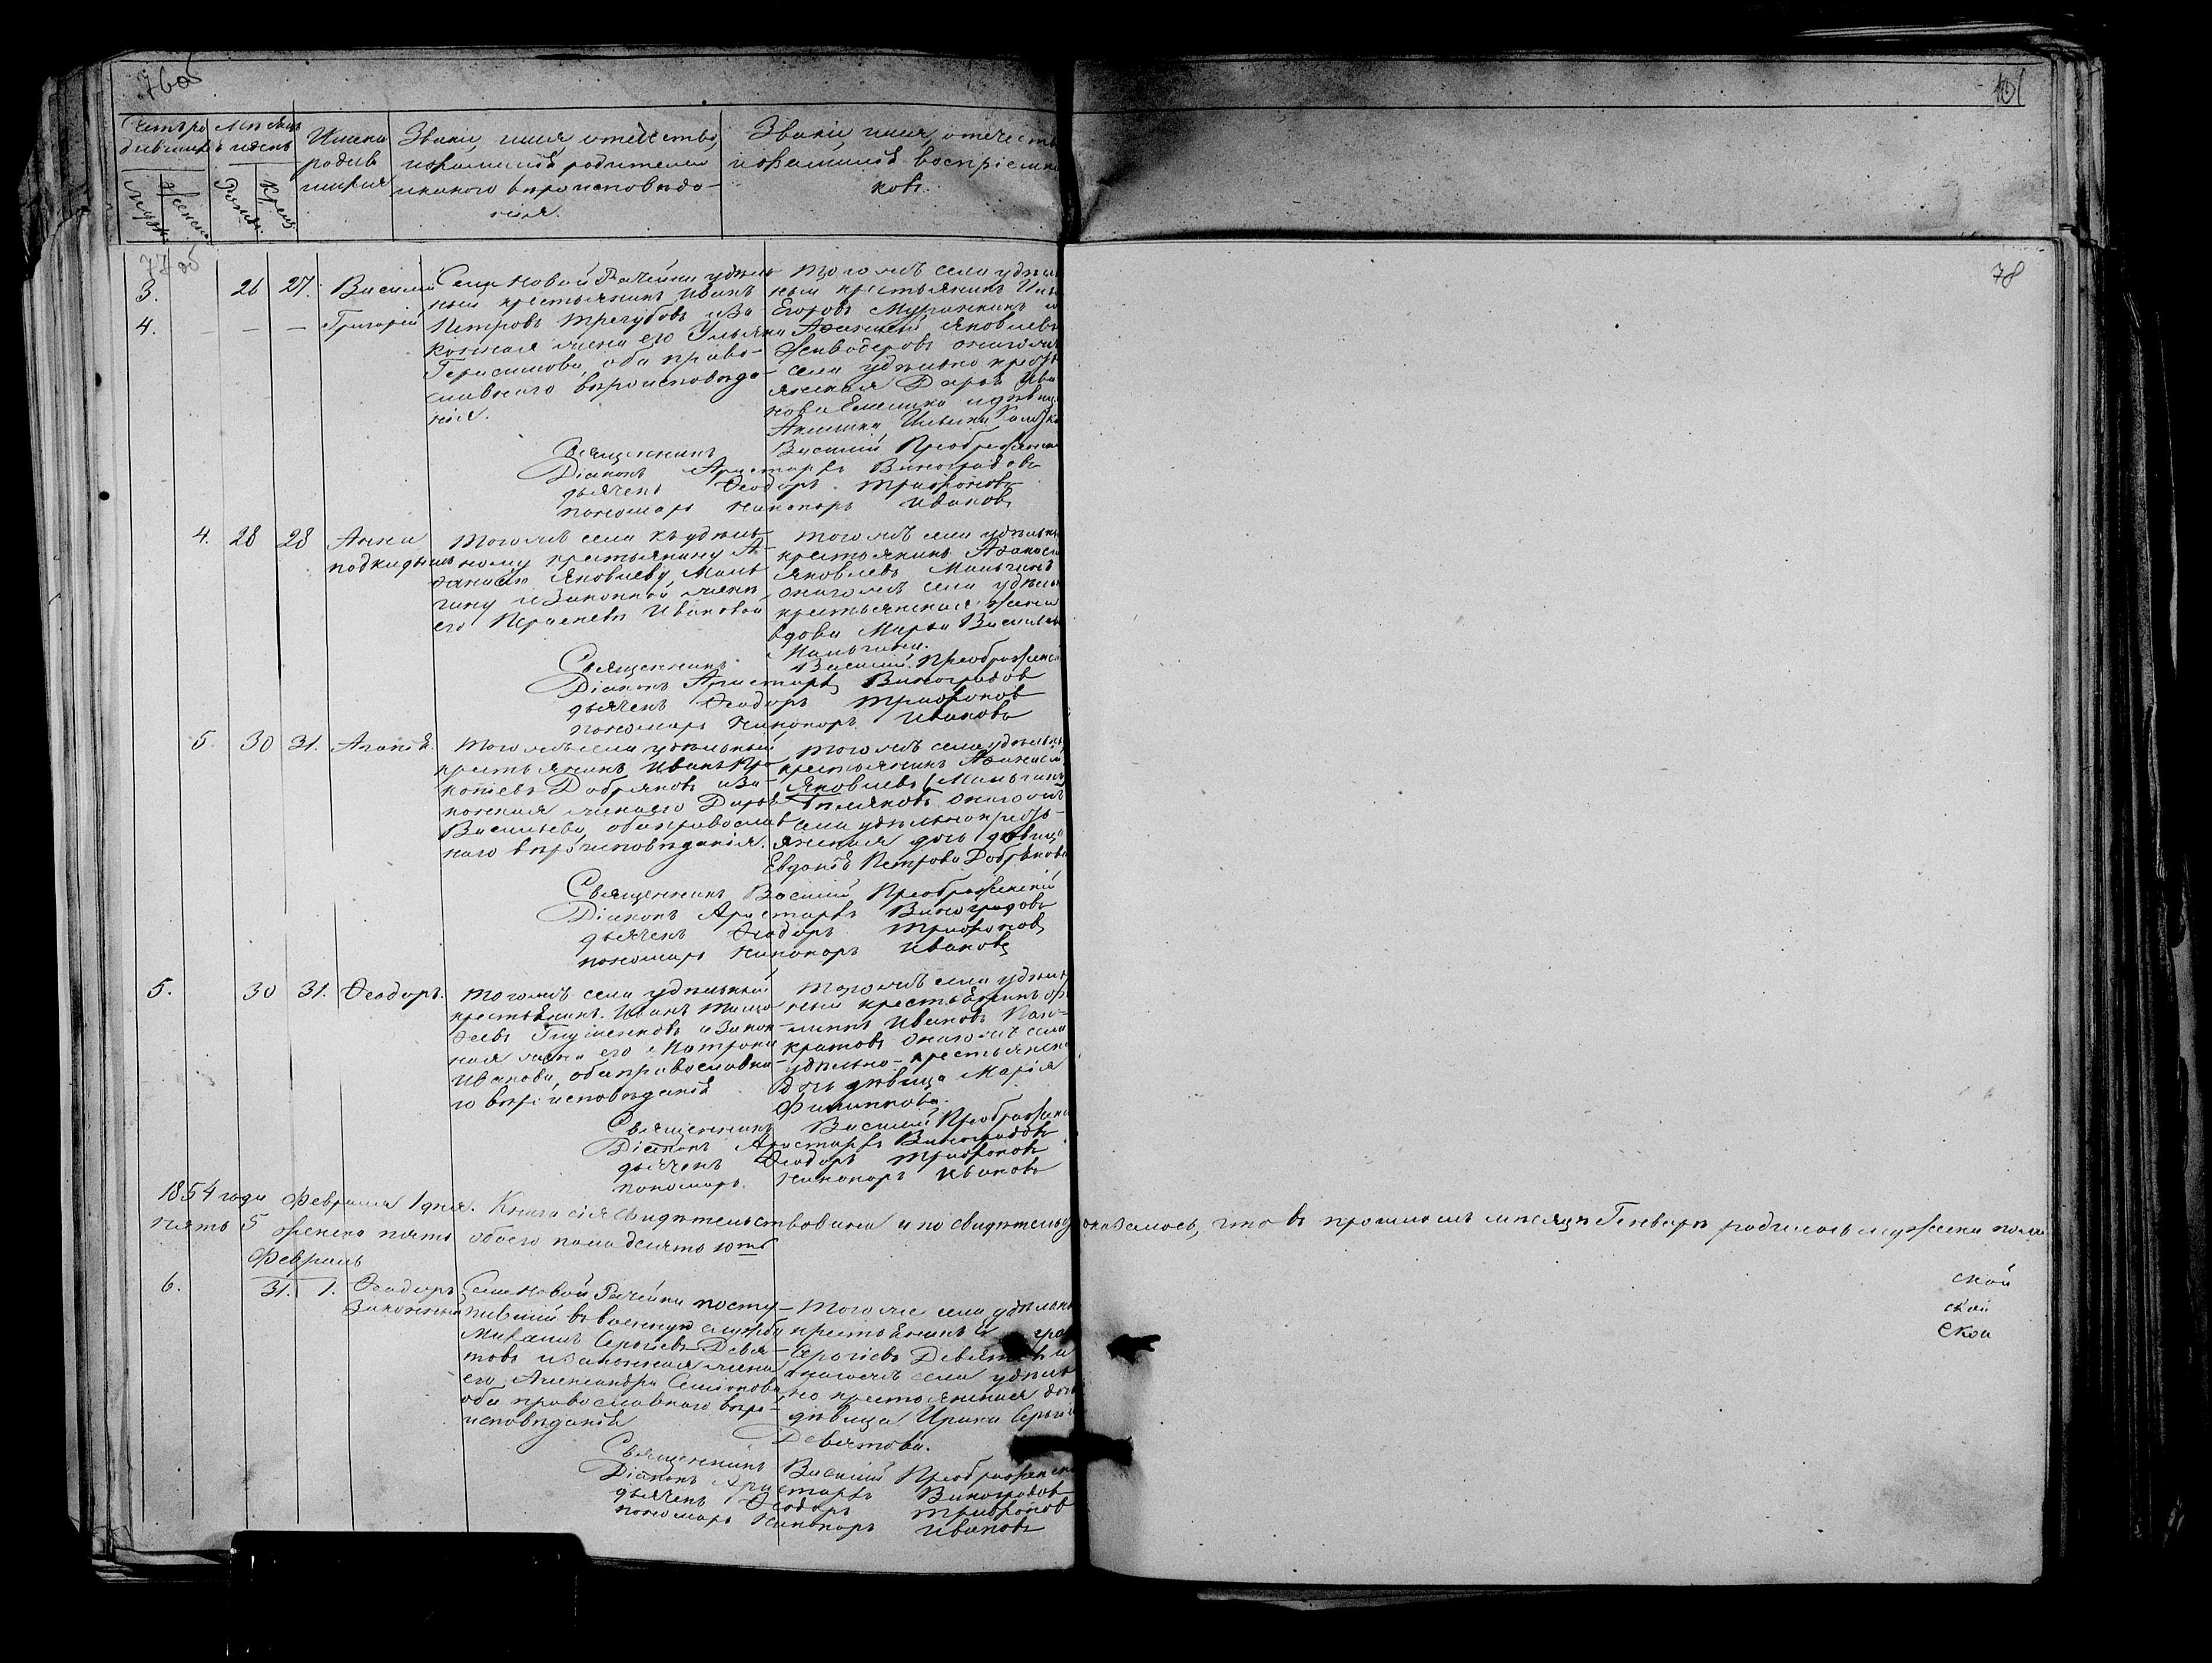 76об
101
Счетъ ро
дившихся
Мѣсяцъ
и день
Имена
родив
шихся
Званіе, имя, отчество,
и фамилія родителей
и какого вѣроисповѣда-
нія.
Званіе, имя, отчеств
и фамилія воспріемни
ковъ.
Муж.
Женска
Рожд.
Крещ.
77об
78
3. 26 27. Василій
4. – – Григорій
Села Новой Рачейки удѣль
ный крестьянинъ Иванъ
Петровъ Трегубовъ и за
конная жена его Ульяна
Герасимова, оба право-
славнаго вѣроисповѣда-
нія.
Того жъ села удѣль
ный крестьянинъ
Егоровъ и
Яковлевъ
онаго жъ
села удѣльно крсть
янская Дарья Ива
нова и дѣвиц
Священникъ Василій Преображенс
Діаконъ Аристархъ Виноградовъ
дьячекъ Ѳеодоръ Трифоновъ
пономарь Никаноръ Ивановъ
4. 28 28 Анна
подкидышъ
Того жъ села къ удѣль-
ному крестьянину А-
фанасію Яковлеву Маль
гину и Законной женѣ
его Прасковьѣ Ивановой
Того жъ села удѣльны
крестьянинъ Афанасі
Яковлевъ Мальгинъ
онаго жъ села удѣль
крестьянская жена
вдова Марья Васильев
Мальгина.
Священникъ Василій Преображенс
Діаконъ Аристархъ Виноградов
дьячекъ Ѳеодоръ Трифонов
пономарь Никаноръ Ивановъ
5. 30 31. Агафія.
Того жъ села удѣльный
крестьянинъ Иванъ Про
кофьевъ Добряковъ и За
конная жена его Дарья
Васильева, оба православ
наго вѣроисповѣданія.
Того жъ села удѣльны
крестьянинъ Афанасій
Яковлевъ (Мальгинъ
онаго жъ
села удѣльно крсть-
янская дочь дѣвица
Евдокія Петрова Добрякова
Священникъ Василій Преображенскій
Діаконъ Аристархъ Виноградовъ
дьячекъ Ѳеодоръ Трифоновъ
пономарь Никаноръ Ивановъ
5. 30 31. Ѳеодоръ.
Того жъ села удѣльный
крестьянинъ Иванъ Тимо
феевъ и Закон
ная жена его Матрона
Иванова, оба православна
го вѣроисповѣданія
Того жъ села удѣль
ный крестьянинъ Фи
липпъ Ивановъ Пан-
кратовъ онаго жъ села
удѣльно-крестьянска
дочь дѣвица Марія
Филиппова.
Священникъ Василій Преображенс
Діаконъ Аристархъ Виноградовъ
дьячекъ Ѳеодоръ Трифоновъ
пономарь Никаноръ Ивановъ
1854 года Февраля 1 дня. Книга сія свидѣтельствована и по свидѣтельству оказалось, что въ прошломъ мѣсяцѣ Генварѣ родилось мужска пола
пять 5 женска пять обоего пола десять 10ть
Февраль
6. 31. 1. Ѳеодоръ
Законный
Села Новой Рачейки посту-
пившій въ военную службу
Михаилъ Сергѣевъ Девя-
товъ и законная жена
его Александра Семенова
оба православнаго вѣро-
исповѣданія
Того же села удѣльн
крестьянинъ
Сергѣевъ Девятовъ и
онаго жъ села удѣль
но крестьянская дочь
дѣвица Ирина Сергѣе
Девятова.
ской
ской
ской
Священникъ Василій Преображен
Діаконъ Аристархъ Виноградов
дьячекъ Ѳеодоръ Трифонов
пономарь Никаноръ Ивановъ